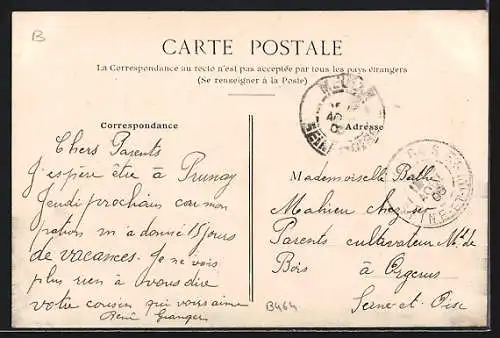 B
CARTE POSTALE
La Correspondance au recto n'est pas acceptée par tous les pays étrangers
(Se renseigner à la Poste)
Correspondance
Adresse
Chers Parents
J'espère être à Prunay
Jeudi prochain car mon
patron m'a donné 15 jours
de vacances. Je ne vois
plus rien à vous dire
votre cousin qui vous aime
René Granger
Mademoiselle
Mahieu chez
Parents cultivateur Md de
Bois à Orgerus
Seine-et-Oise
B464